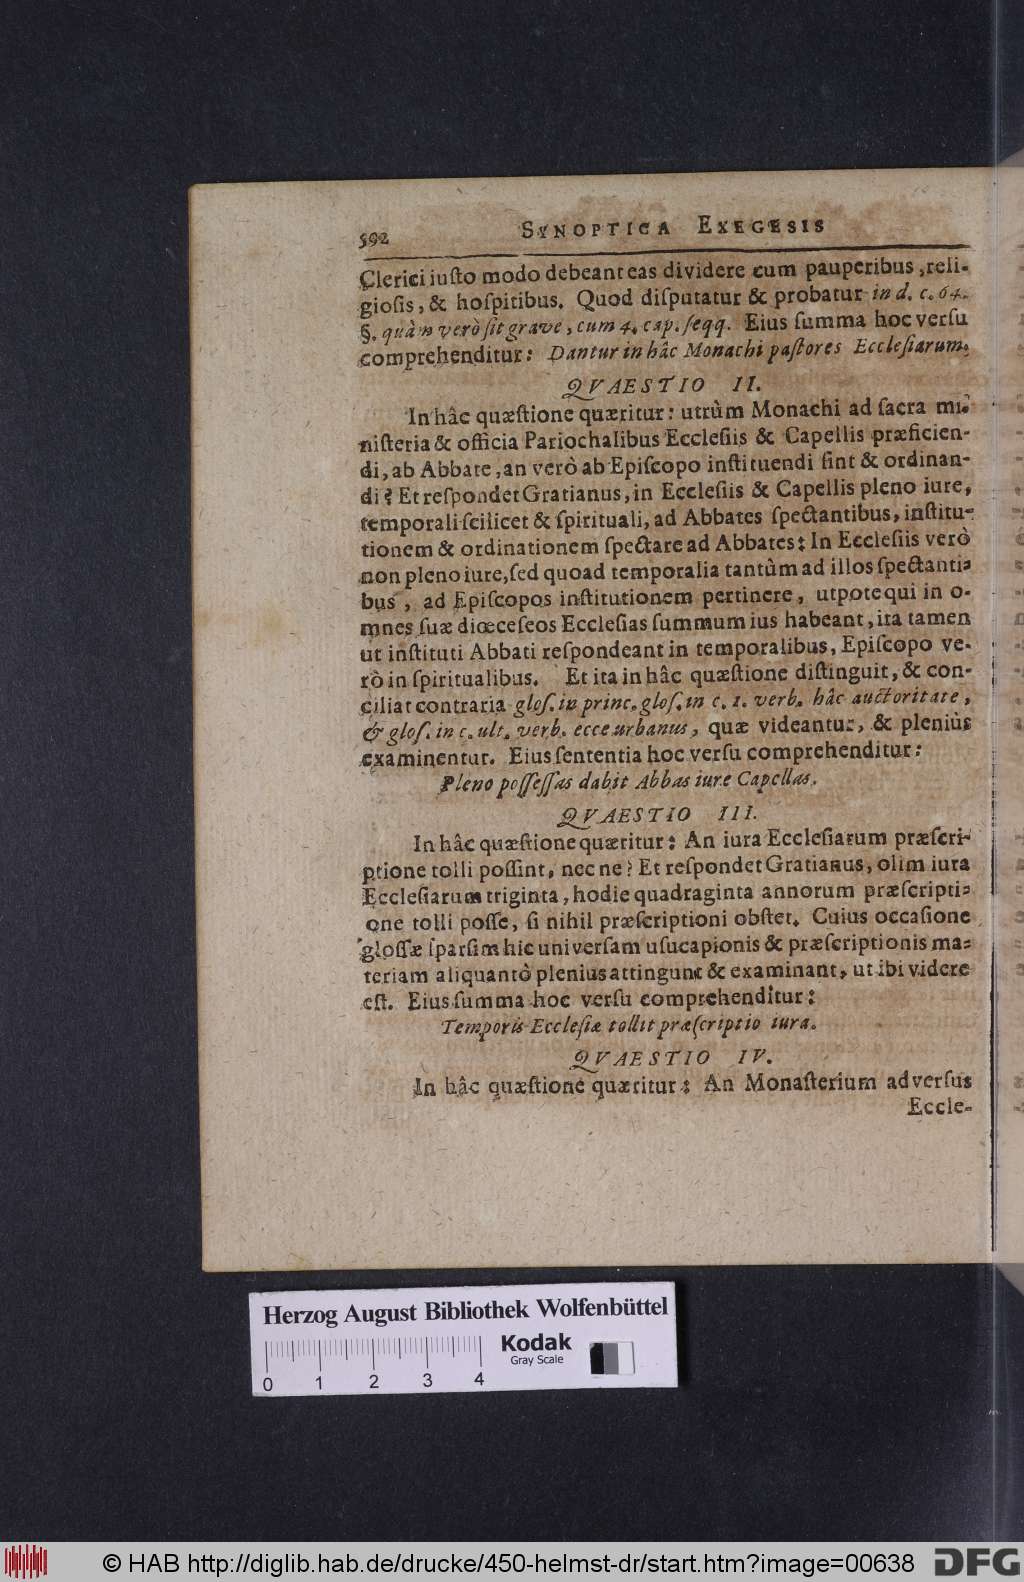 592 SYNOPTICA EXEGESIS
Clerici iuſto modo debeant eas dividere cum pauperibus, reli-
gioſis, & hoſpitibus. Quod diſputatur & probatur in d. c. 64.
§. quàm verò ſit grave, cum 4. cap. ſeqq. Eius ſumma hoc verſu
comprehenditur: Dantur in hâc Monachi paſtores Eccleſiarum.
QVAESTIO II.
In hâc quæſtione quæritur: utrùm Monachi ad ſacra mi-
niſteria & officia Pariochalibus Eccleſiis & Capellis præficien-
di, ab Abbate, an verò ab Epiſcopo inſtituendi ſint & ordinan-
di? Et reſpondet Gratianus, in Eccleſiis & Capellis pleno iure,
temporali ſcilicet & ſpirituali, ad Abbates ſpectantibus, inſtitu-
tionem & ordinationem ſpectare ad Abbates: In Eccleſiis verò
non pleno iure, ſed quoad temporalia tantùm ad illos ſpectanti-
bus, ad Epiſcopos inſtitutionem pertinere, utpote qui in o-
mnes ſuæ diœceſeos Eccleſias ſummum ius habeant, ita tamen
ut inſtituti Abbati reſpondeant in temporalibus, Epiſcopo ve-
rò in ſpiritualibus. Et ita in hâc quæſtione diſtinguit, & con-
ciliat contraria gloſ. in princ. gloſ. in c. 1. verb. hâc auctoritate,
& gloſ. in c. ult. verb. ecce urbanus, quæ videantur, & pleniùs
examinentur. Eius ſententia hoc verſu comprehenditur:
Pleno poſſeſſas dabit Abbas iure Capellas.
QVAESTIO III.
In hâc quæſtione quæritur: An iura Eccleſiarum præſcri-
ptione tolli poſſint, nec ne? Et reſpondet Gratianus, olim iura
Eccleſiarum triginta, hodie quadraginta annorum præſcripti-
one tolli poſſe, ſi nihil præſcriptioni obſtet. Cuius occaſione
gloſſæ ſparſim hic univerſam uſucapionis & præſcriptionis ma-
teriam aliquantò plenius attingunt & examinant, ut ibi videre
eſt. Eius ſumma hoc verſu comprehenditur:
Temporis Eccleſiæ tollit præſcriptio iura.
QVAESTIO IV.
In hâc quæſtione quæritur: An Monaſterium adverſus
Eccle-
Herzog August Bibliothek Wolfenbüttel
Kodak
Gray Scale
0 1 2 3 4
© HAB http://diglib.hab.de/drucke/450-helmst-dr/start.htm?image=00638
DFG